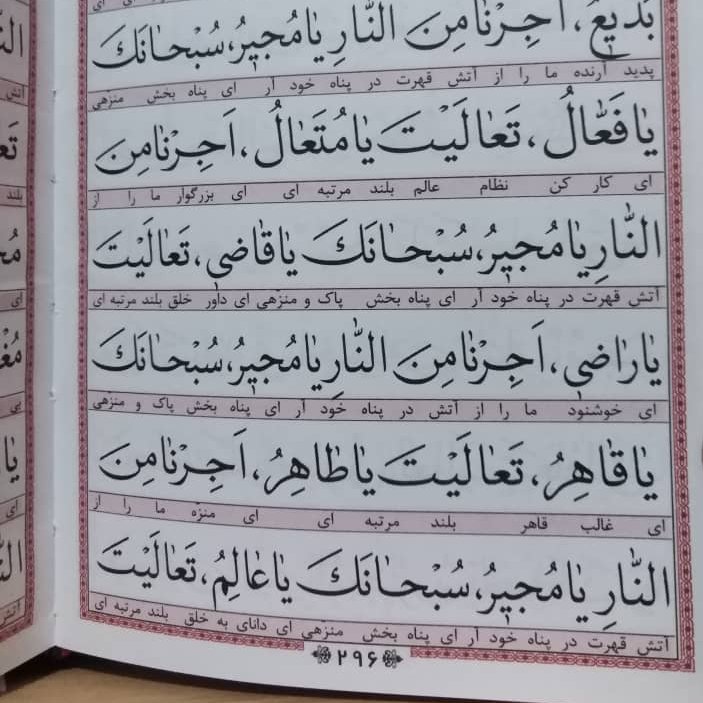 بَدیعُ، اَجِرْنا مِنَ النّارِ یا مُجیرُ، سُبْحانَكَ
پدید آرنده ما را از آتش قهرت در پناه خود آر ای پناه بخش منزهی
یا فَعّالُ، تَعالَیْتَ یا مُتَعالُ، اَجِرْنا مِنَ
ای کار کن نظام عالم بلند مرتبه ای ای بزرگوار ما را از
النّارِ یا مُجیرُ، سُبْحانَكَ یا قاضی، تَعالَیْتَ
آتش قهرت در پناه خود آر ای پناه بخش پاک و منزهی ای داور خلق بلند مرتبه ای
یا راضی، اَجِرْنا مِنَ النّارِ یا مُجیرُ، سُبْحانَكَ
ای خوشنود ما را از آتش در پناه خود آر ای پناه بخش پاک و منزهی
یا قاهِرُ، تَعالَیْتَ یا طاهِرُ، اَجِرْنا مِنَ
ای غالب قاهر بلند مرتبه ای ای منزه ما را از
النّارِ یا مُجیرُ، سُبْحانَكَ یا عالِمُ، تَعالَیْتَ
آتش قهرت در پناه خود آر ای پناه بخش منزهی ای دانای به خلق بلند مرتبه ای
۲۹۶